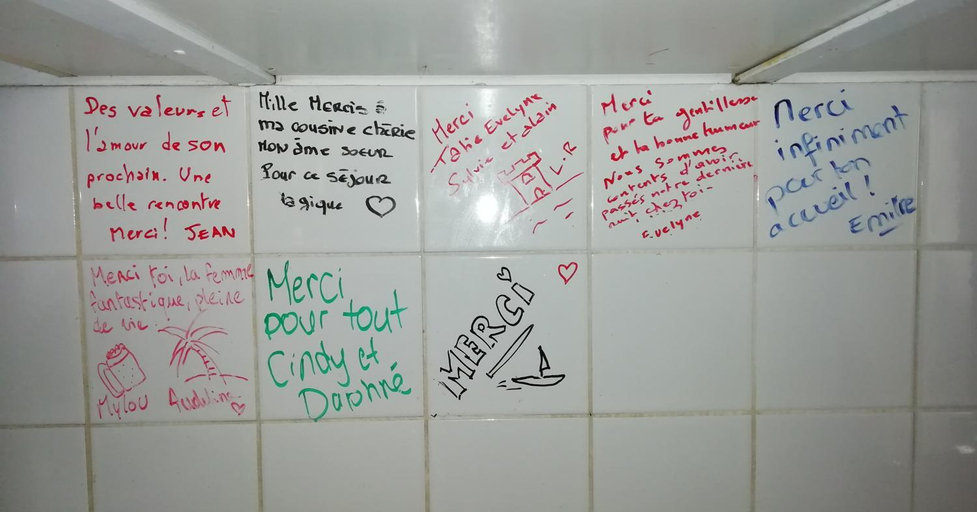 Des valeurs et
l'amour de son
prochain. Une
belle rencontre
Merci! JEAN
Mille Mercis à
ma cousine chérie
MON âme SOEUR
Pour ce SÉJOUR
Magique
Merci
Tatie Evelyne
Sylvie et Alain
L.R
Merci
pour ta gentillesse
et ta bonne humeur
Nous sommes
contents d'avoir
passés notre dernière
nuit chez toi
Evelyne
Merci
infiniment
pour ton
accueil!
Emilie
Merci toi, la femme
fantastique, pleine
de vie
Mylou
Merci
pour tout
Cindy et
MERCI